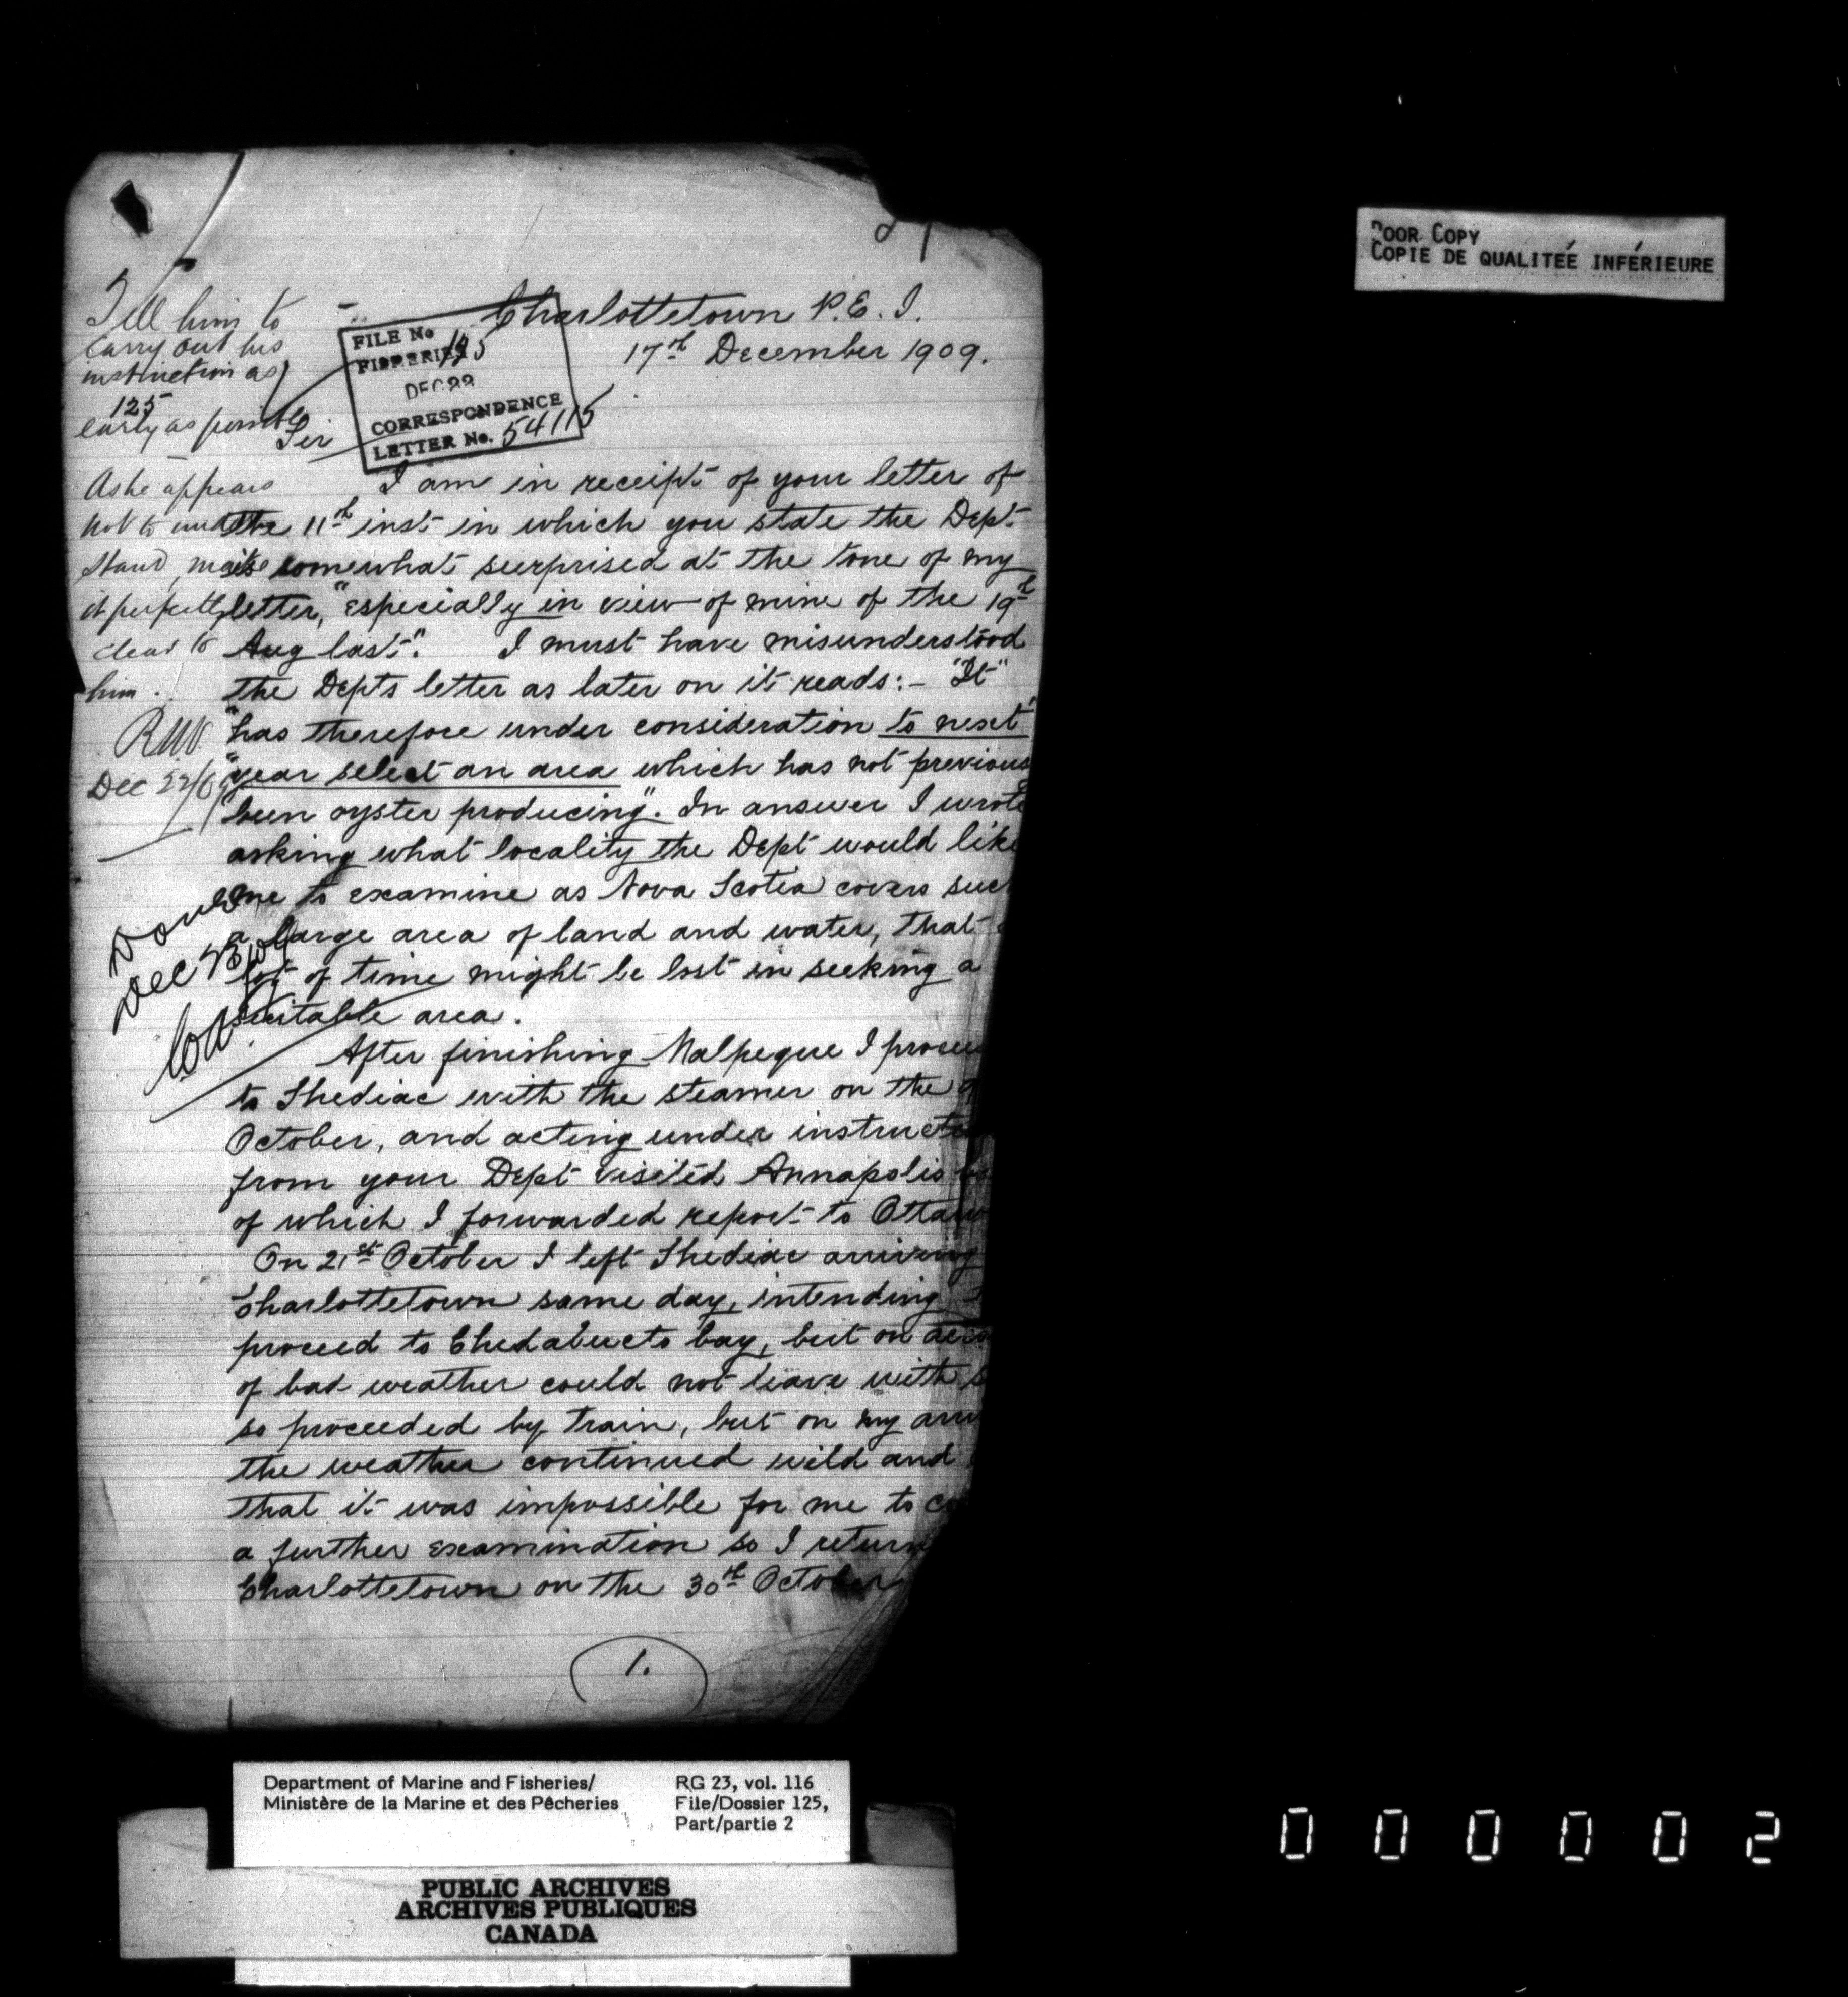 POOR COPY
COPIE DE QUALITÉE INFÉRIEURE
Charlottetown P.E.I.
17th December 1909.
FILE No
FISHERIES 125
DEC 22
CORRESPONDENCE
LETTER No. 54115
Tell him to
carry out his
instruction as
125
early as possible
As he appears
not to under
stand, make
it perfectly
clear to
him.
Dec 22/09
Done
Dec 23/09
Sir
I am in receipt of your letter of
the 11th inst in which you state the Dept
is somewhat surprised at the tone of my
letter, "especially in view of mine of the 19th
Aug last". I must have misunderstood
the Depts letter as later on it reads:- "It"
"has therefore under consideration to next"
"year select an area which has not previous
"been oyster producing". In answer I wrote
asking what locality the Dept would like
me to examine as Nova Scotia covers such
a large area of land and water, that
lot of time might be lost in seeking a
suitable area.
After finishing Malpeque I procee
to Shediac with the steamer on the
October, and acting under instructi
from your Dept visited Annapolis
of which I forwarded report to Ottaw
On 21st October I left Shediac arriving
Charlottetown same day, intending
proceed to Chedabucto bay, but on acco
of bad weather could not leave with
so proceeded by train, but on my arri
the weather continued wild and
that it was impossible for me to
a further examination so I return
Charlottetown on the 30th October
1.
Department of Marine and Fisheries/
Ministère de la Marine et des Pêcheries
RG 23, vol. 116
File/Dossier 125,
Part/partie 2
PUBLIC ARCHIVES
ARCHIVES PUBLIQUES
CANADA
000002